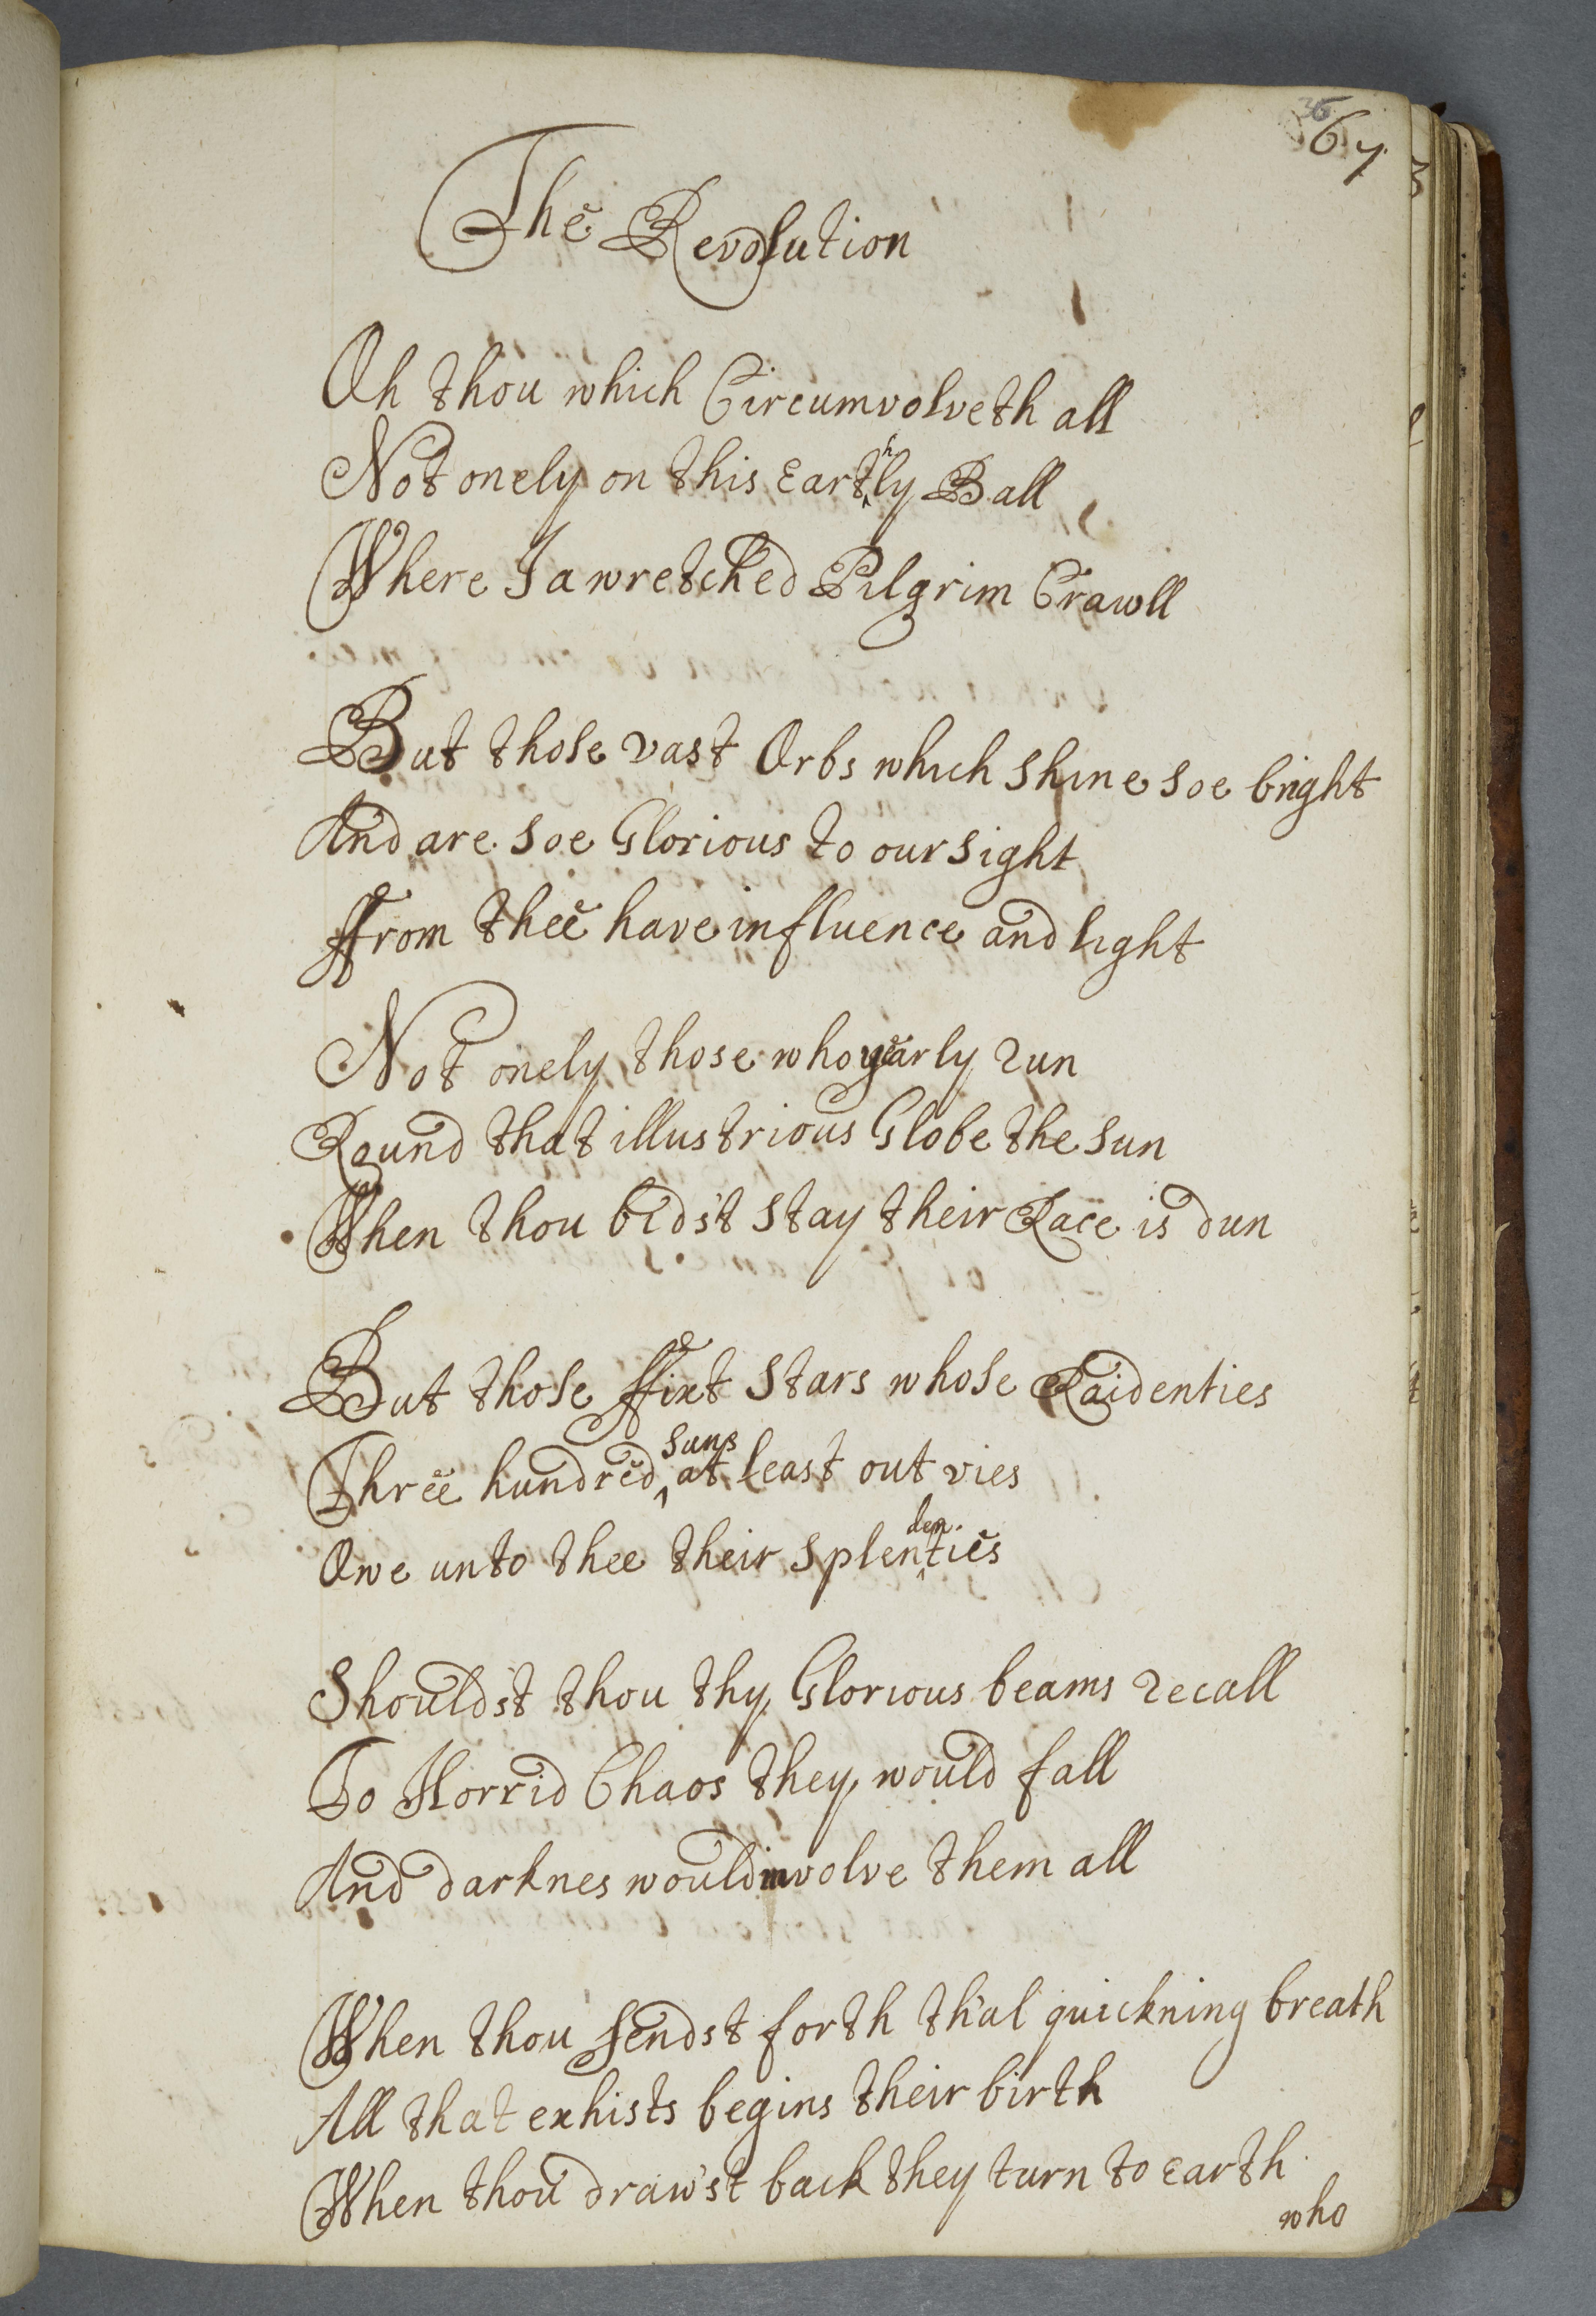 36
67
The Revolution
Oh thou which Circumvolveth all
Not onely on this Earthly Ball
Where I a wretched Pilgrim Crawll
But those vast Orbs which shine soe bright
And are soe Glorious to our sight
ffrom thee have influence and light
Not onely those who yearly run
Round that illustrious Globe the Sun
When thou bidst stay their Race is dun
But those ffixt Stars whose Raidenties
Three hundred suns at least out vies
Owe unto thee their splendenties
Shouldst thou thy Glorious beams recall
To Horrid Chaos they would fall
And darknes would involve them all
When thou sendst forth th'al quickning breath
All that exhists begins their birth
When thou draw'st back they turn to Earth
who